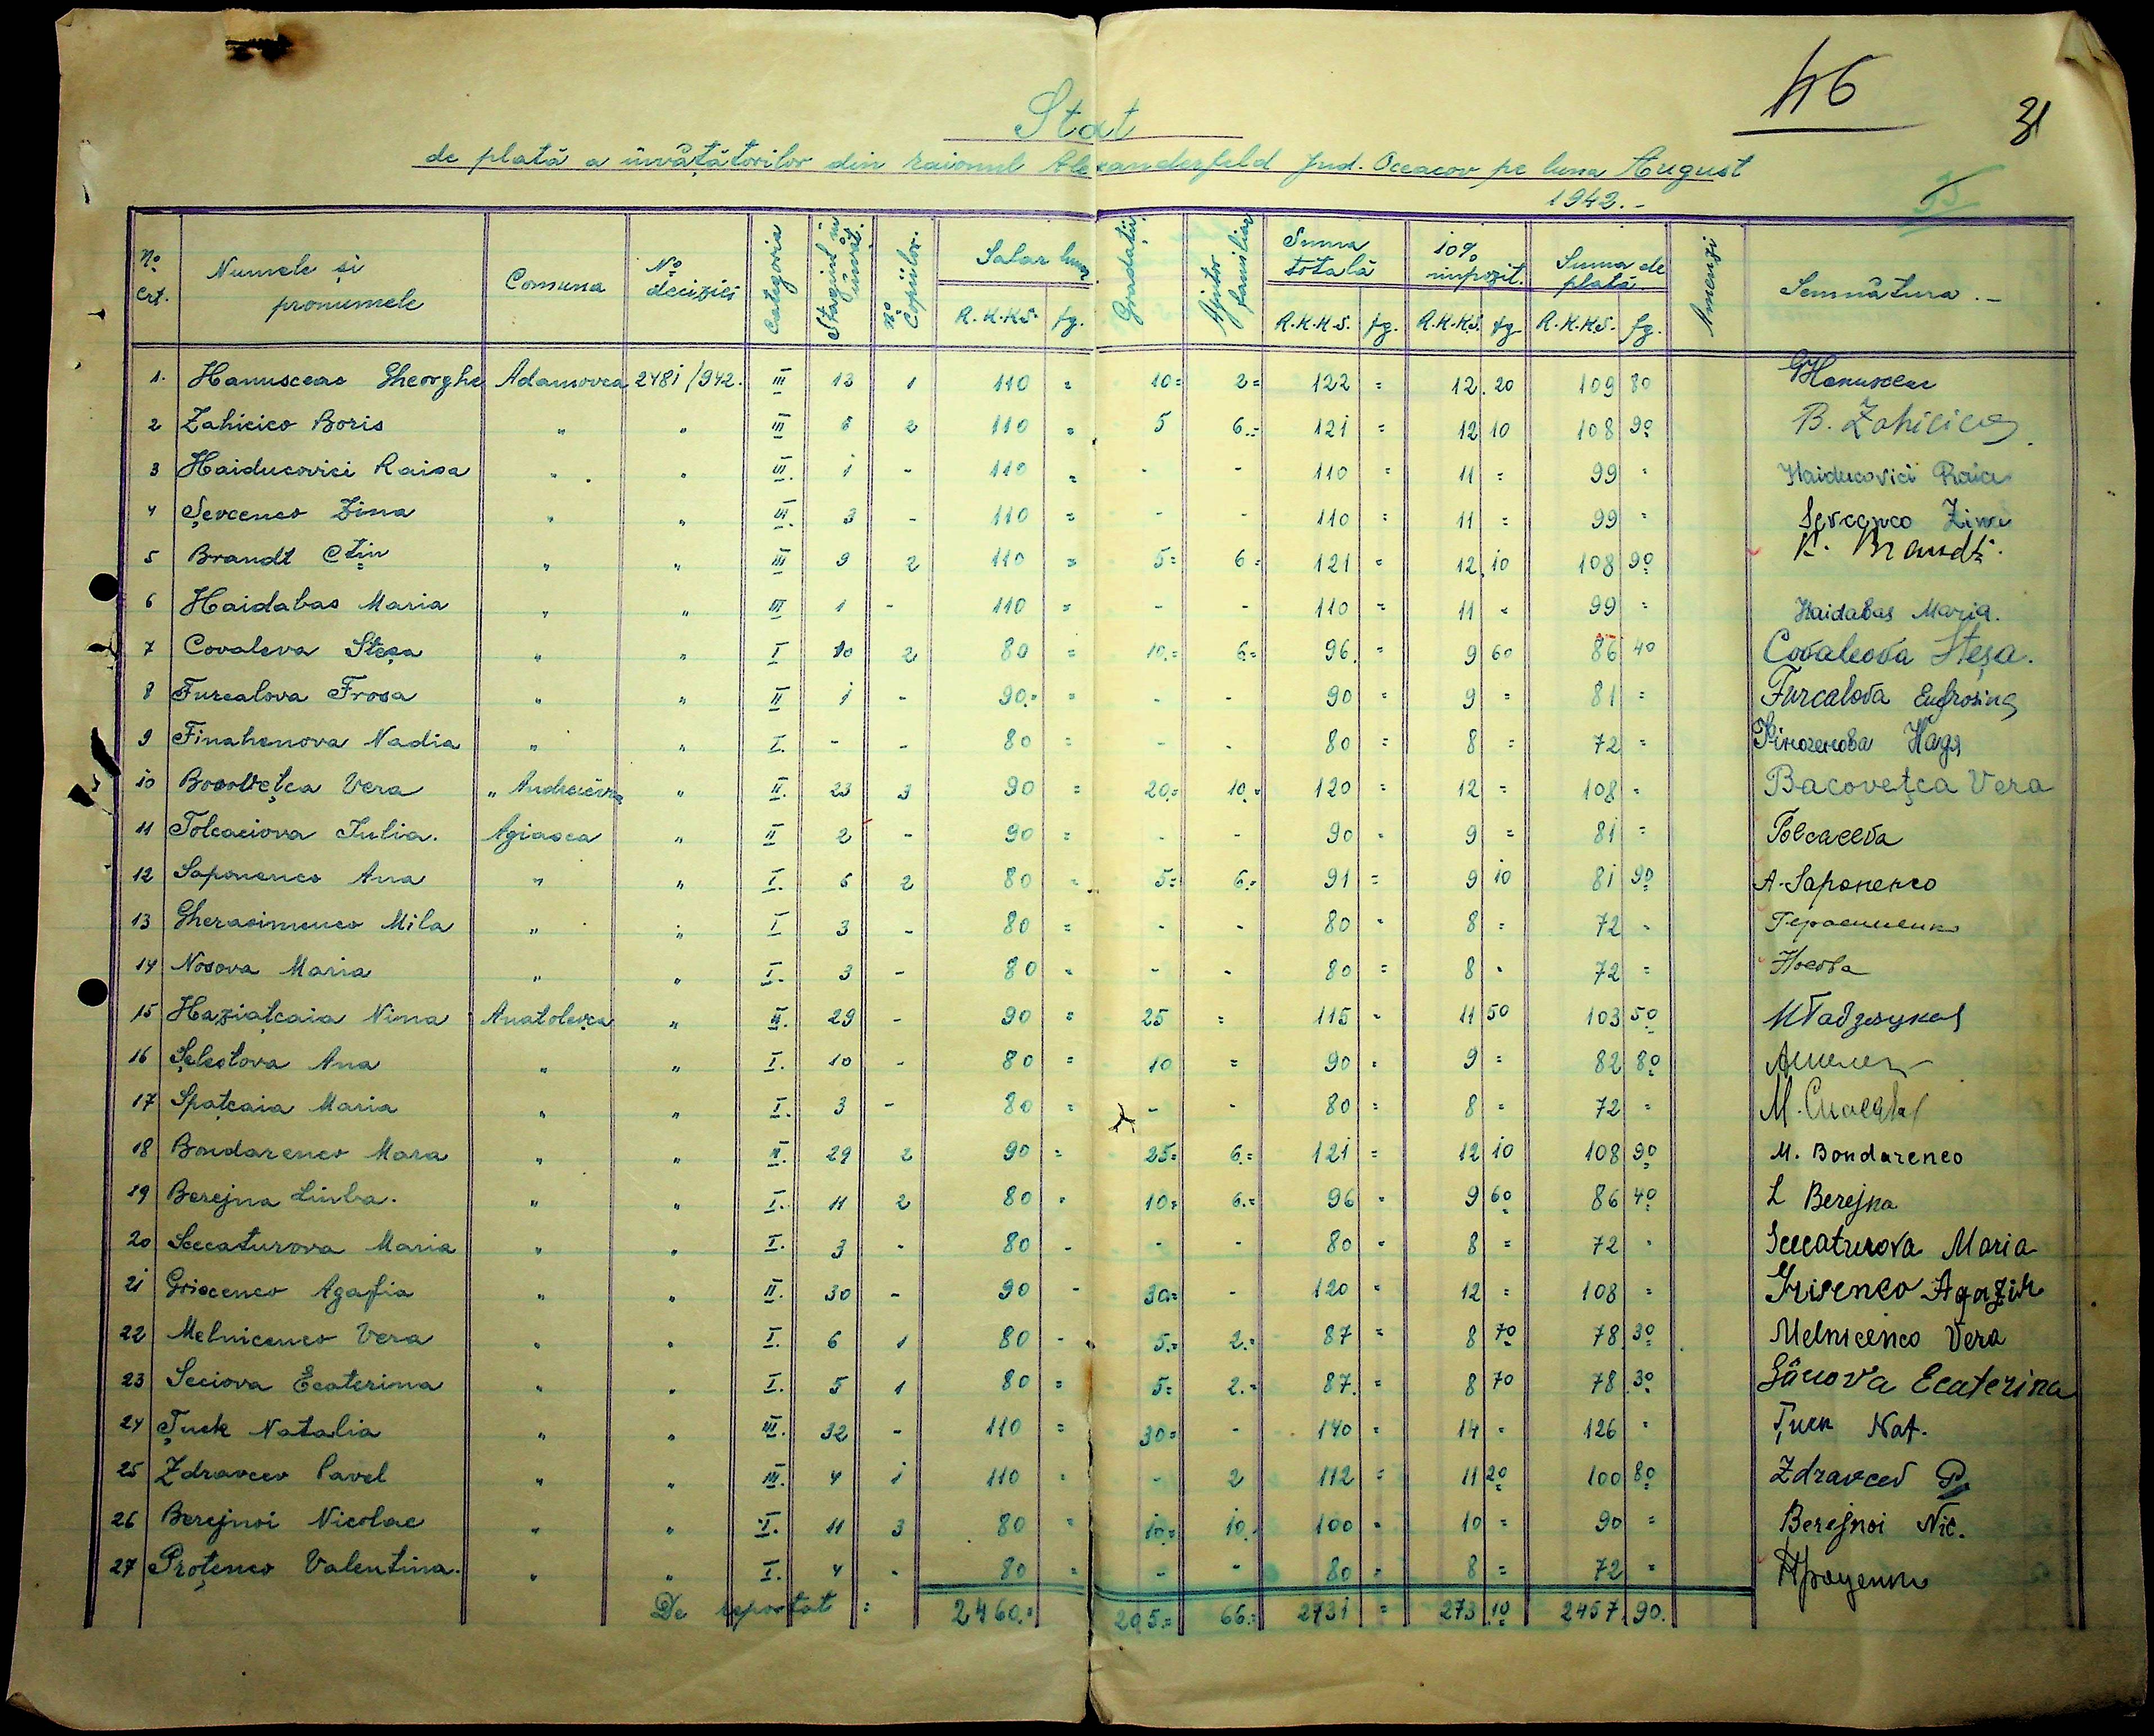 46
31
Stat
de plată a învățătorilor din raionul Alexanderfeld Jud. Oceacov pe luna August
1942.-
No Crt. | Numele și pronumele | Comuna | No deciziei | Categoria | Stagiul în învăț. | No Copiilor. | Salar lunar R.K.KS. fg. | Gradații | Ajutor familiar | Suma totală R.K.K.S. fg. | 10% impozit. R.K.K.S. fg | Suma de plată R.K.KS. fg. | Amenzi | Semnătura.-
1. Hanusceac Gheorghe Adamovca 2481/942. III 13 1 110 = 10= 2= 122 = 12.20 109 80 GHanusceac
2 Zahicico Boris " " III 8 2 110 = 5 6.= 121 = 12 10 108 90 B. Zahicico
3 Haiducovici Raisa " " III. 1 - 110 = - - 110 = 11 = 99 = Haiducovici Raia
4 Șevcenco Zina " " III. 3 - 110 = - - 110 = 11 = 99 = Șevcenco Zina
5 Brandt Ctin " " III 9 2 110 = 5= 6= 121 = 12.10 108 90 K. Brandt.
6 Haidabas Maria " " III 1 - 110 = - - 110 = 11 = 99 = Haidabas Maria.
7 Covaleva Steșa " " I 10 2 80 = 10.= 6= 96. = 9 60 86 40 Covaleova Steșa.
8 Furcalova Frosa " " II 1 - 90.= = - - 90 = 9 = 81 = Furcalova Eufrosina
9 Finahenova Nadia " " I. - - 80 = - - 80 = 8 = 72 = Финогенова Надя
10 Bacovețca Vera " Andreievca " II. 23 3 90 = 20.= 10.= 120 = 12 = 108 = Bacovețca Vera
11 Tolcaciova Iulia. Agiasca " II 2 - 90 = - - 90 = 9 = 81 =
12 Saponenco Ana " " I. 6 2 80 = 5= 6.= 91 = 9 10 81 90 A. Saponenco
13 Gherasimenco Mila " " I 3 - 80 = - - 80 = 8 = 72 = Герасименко
14 Nosova Maria " " I. 3 - 80 = - - 80 = 8 = 72 = Носова
15 Haziațcaia Nima Anatolevca " II. 29 - 90 = 25 = 115 = 11 50 103 50
16 Șelestova Ana " " I. 10 - 80 = 10 = 90 = 9 = 82 80
17 Spațcaia Maria " " I. 3 - 80 = - - 80 = 8 = 72 =
18 Bondarenco Mara " " II. 29 2 90 = 25= 6.= 121 = 12 10 108 90 M. Bondarenco
19 Berejna Liuba. " " I. 11 2 80 = 10= 6.= 96 = 9 60 86 40 L Berejna
20 Scecaturova Maria " " I. 3 - 80 - - - 80 = 8 = 72 = Scecaturova Maria
21 Griscenco Agafia " " II. 30 - 90 - 30= - 120 = 12 = 108 =
22 Melnicenco Vera " " I. 6 1 80 - 5.= 2.= 87 = 8 70 78 30 Melnicenco Vera
23 Seciova Ecaterina " " I. 5 1 80 = 5= 2.= 87. = 8 70 78 30 Ecaterina
24 Țuck Natalia " " III. 32 - 110 = 30= - 140 = 14 = 126 = Țuck Nat.
25 Zdravcev Pavel " " III. 4 1 110 = - 2 112 = 11 20 100 80 Zdravcev P.
26 Berejnoi Nicolae " " I. 11 3 80 = 10= 10.= 100 = 10 = 90 = Berejnoi Nic.
27 Proțenco Valentina. " " I. 4 - 80 = - - 80 = 8 = 72 = Проценко
De reportat = 2460.= 205.= 66.= 2731 = 273 10 2457 90.